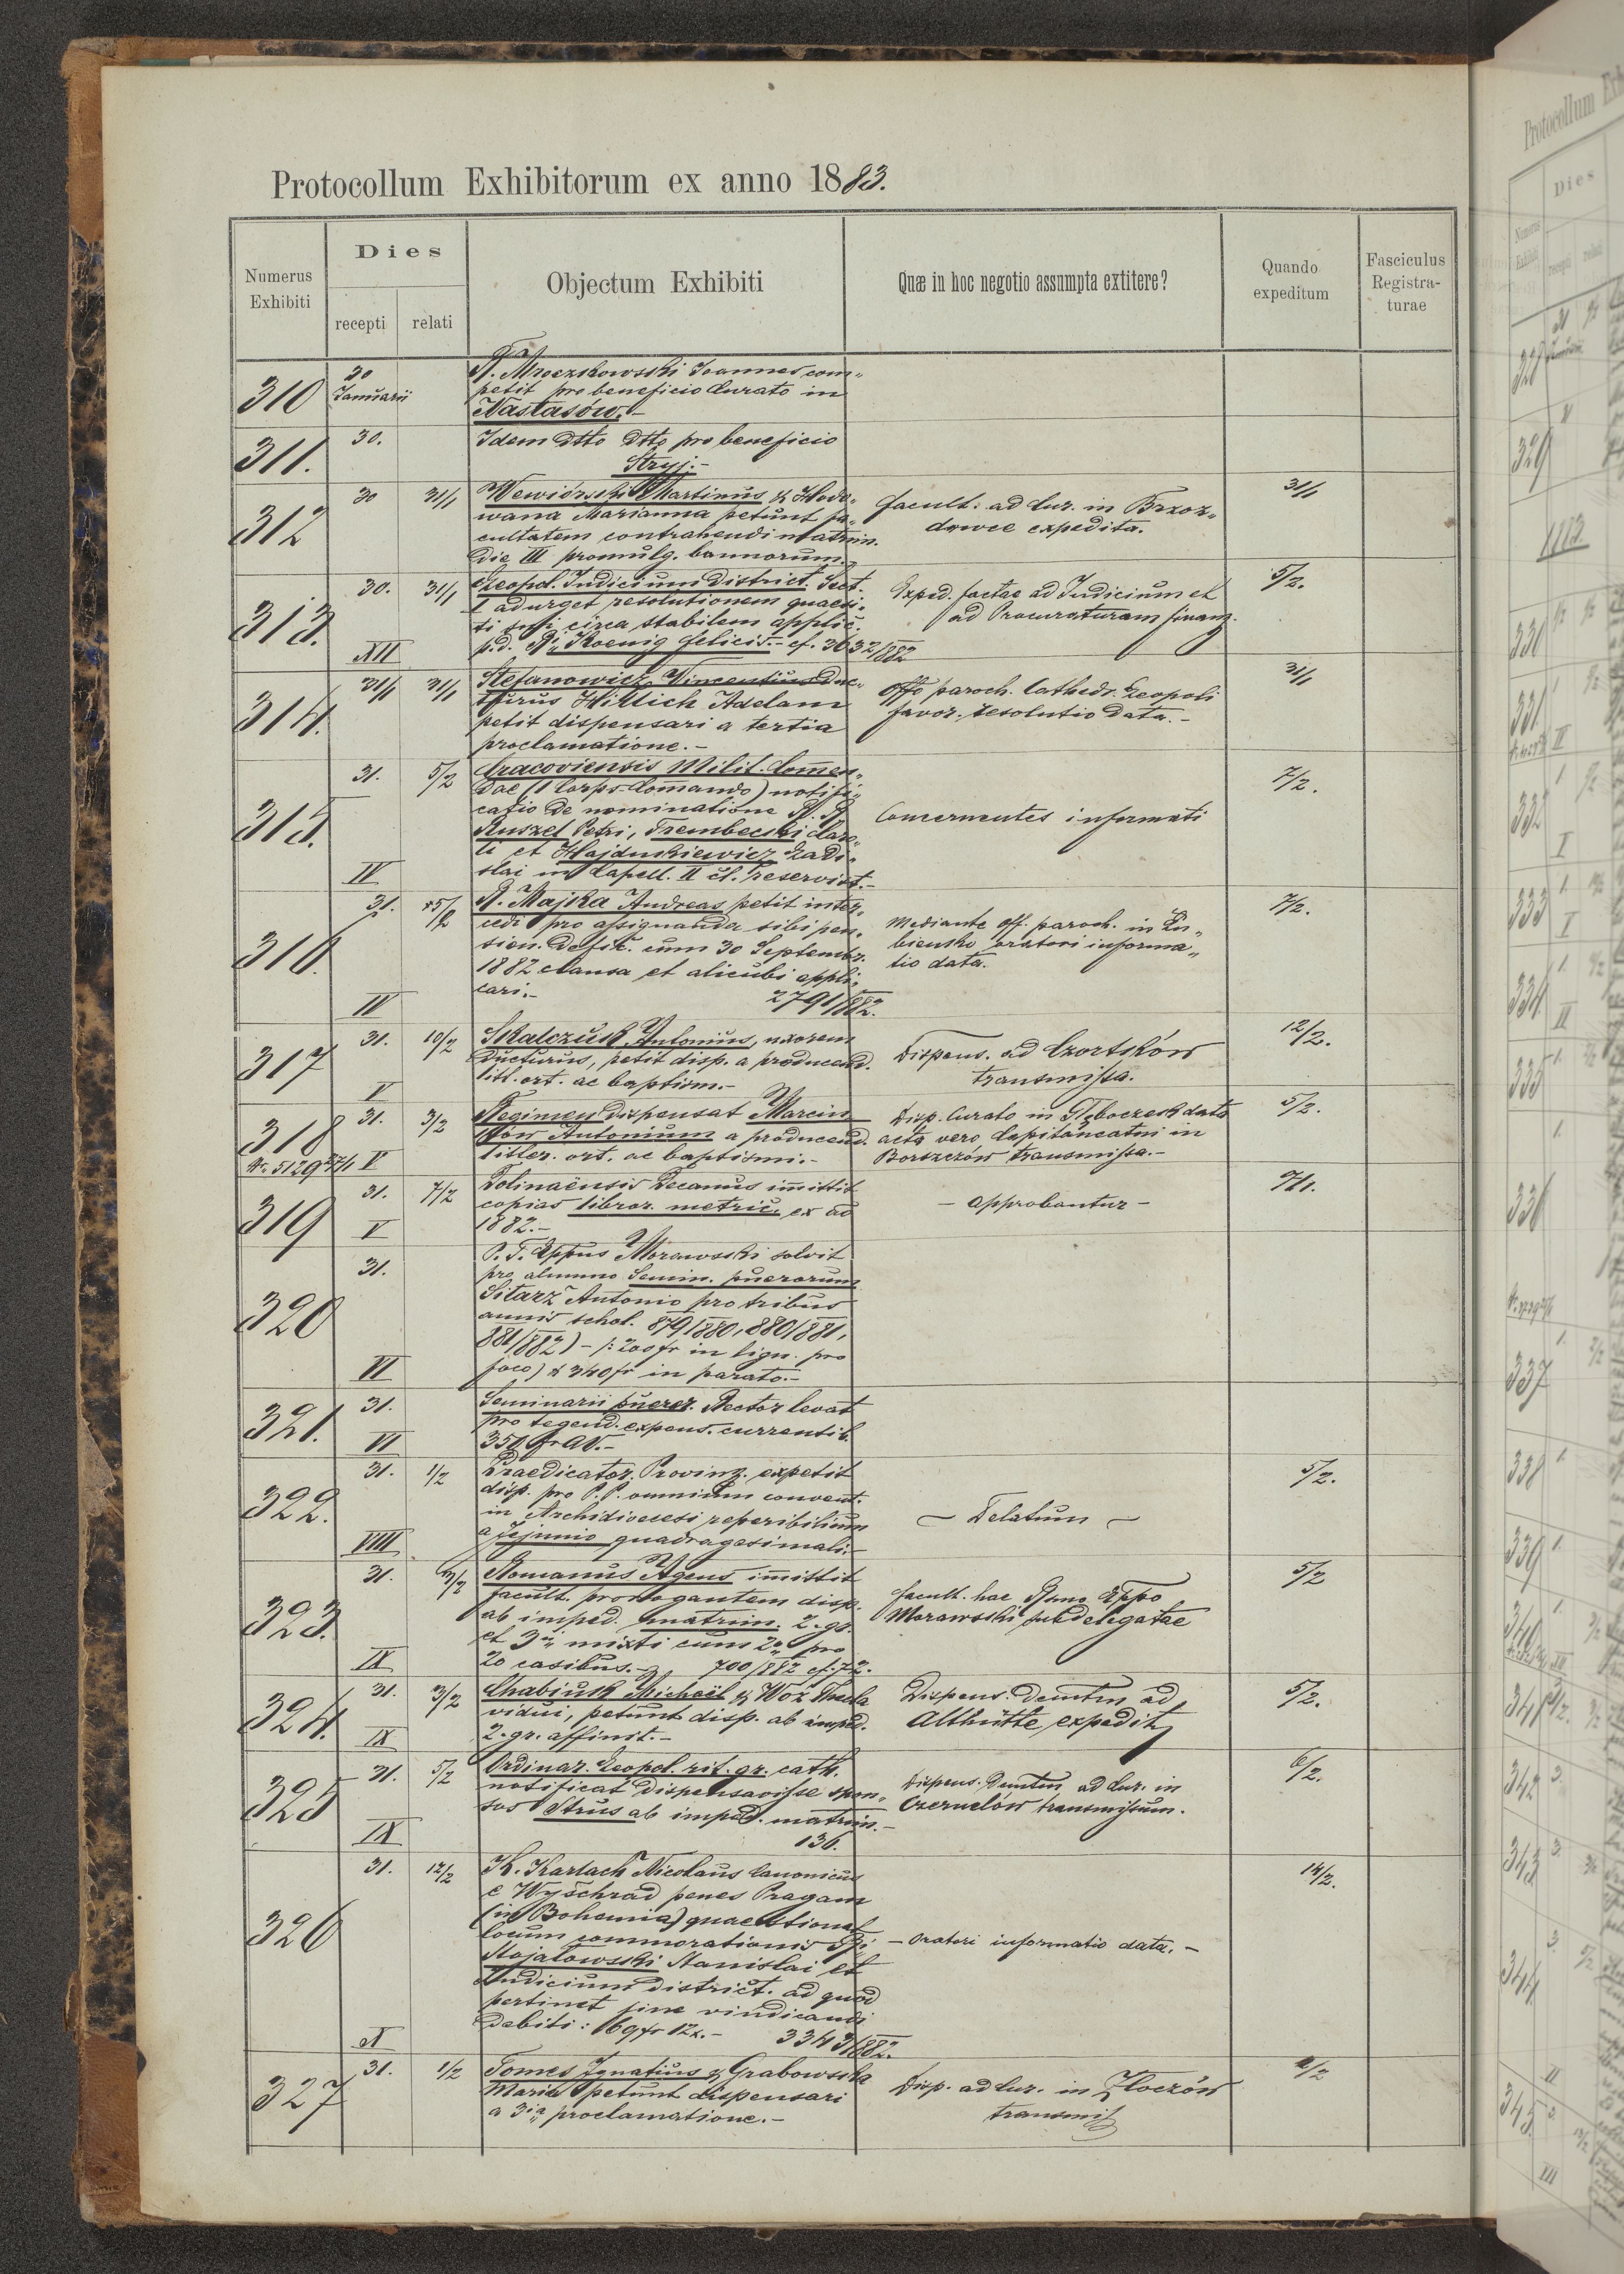 Protocollum Exhibitorum ex anno 1883.
Numerus Exhibiti
Dies
recepti
relati
Objectum Exhibiti
Quæ in hoc negotio assumpta extitere?
Quando expeditum
Fasciculus Registra-turae
310
30 Januarii
R. Mroczkowski Joannes com„
petit pro beneficio Curato in
Nastasów.-
311.
30.
Idem dtto dtto pro beneficio
Stryj.-
312
30
31/1
Wewiórski Martinus & Hodo„
wana Marianna petunt fa„
cultatem contrahendi matrim.
die III promulg. bannorum.
facult. ad Cur. in Brzoz„
dowce expedita.
31/1
313.
30.
31/1
XII
Leopol. Judicium District. Sect.
I adurget resolutionem quaesi„
ti sui circa stabilem applic.
p.d. Ri Koenig Felicis.- cf. 3632/882
Exped. factae ad Judicium et
ad Procuraturam finanz.
5/2.
314.
31/1
31/1
Stefanowicz Vincentius duc„
turus Hittlich Adelam
petit dispensari a tertia
proclamatione.-
Offo paroch. Cathedr. Leopoli
favor. resolutio data.-
31/1
315.
31.
5/2
IV
Cracoviensis Milit. Comen„
dae (1 Corps-Commando) notifi„
catio de nominatione R. R.
Ruszel Petri, Trembecki Caro„
li et Hajdukiewicz Ladi„
slai in Capell. II cl. reservist.-
Concernentes informati
7/2.
316.
31.
5/2
IV
R. Majka Andreas petit inter„
cedi pro assignanda sibi pen„
sion. defic. cum 30 Septembr.
1882 clausa et alicubi appli„
cari.-
2791/882.
Mediante off. paroch. in Lu„
bieńsko oratori informa„
tio data.
7/2.
317
31.
10/2
V
Skalczuk Antonius, uxorem
ducturus, petit disp. a producend.
litt. ort. ac baptism.-
Dispens. ad Czortków
transmissa.
12/2.
318
Nr. 5129 27/1
31.
3/2
V
Regimen dispensat Marcin
ków Antonium a producend.
litter. ort. ac baptismi.-
Disp. Curato in Głęboczek data
acta vero Capitaneatui in
Borszczów transmissa.-
5/2.
319
31.
7/2
V
Dolinaënsis Decanus imittit
copias libror. metric. ex ao
1882.-
- approbantur -
7/1.
320
31.
VI
P. T. Eppus Morawski solvit
pro alumno Semin. puerorum
Sitarz Antonio pro tribus
annis schol. 879/880, 880/881,
881/882) - (: 200 fr in lign. pro
foco) & 340 fr in parato.-
321.
31.
VI
Seminarii pueror. Rector levat
pro tegend. expens. currentib.
350 fr AV.-
322.
31.
1/2
VIII
Praedicator. Provinz. expetit
disp. pro P.P. omnium convent.
in Archidioecesi reperibilium
a Jejunio quadragesimali.-
- Delatum -
5/2.
323.
31.
3/2
IX
Romanus Agens imittit
facult. prorogantem disp.
ab imped. matrim. 2. gr.
et 3ii mixti cum 2o pro
20 casibus.- 700/882 cf. 72.
facult. hae Rsmo Eppo
Morawski subdelegatae
5/2
324.
31.
3/2
IX
Chabiuk Michaël & Woż Thecla
vidui, petunt disp. ab imped.
2. gr. affinit.-
Dispens. demtm ad
Althütte expedit
5/2.
325
31.
5/2
IX
Ordinar. Leopol. rit. gr. cath.
notificat dispensavisse spon„
sos Strus ab imped. matrim.-
136.
Dispens. demtm ad Cur. in
Czernelów transmissum.
6/2.
326
31.
12/2
X
K. Karlach Nicolaus Canonicus
e Wyšehrad penes Pragam
(in Bohemia) quaestionat
locum commorationis Ri
Stojałowski Stanislai et
Judicium district. ad quod
pertinet fine vindicandi
debiti: 169 fr 12x.-
3343/882.
- Oratori informatio data. -
14/2.
327
31.
1/2
Tomes Ignatius & Grabowska
Maria petunt dispensari
a 3ia proclamatione.-
Disp. ad Cur. in Złoczów
transmiss
2/2
Protocollum
Dies
328
329
1883
330
331
332
333
334
335
336
337
338
339
340
341
342
343
344
345